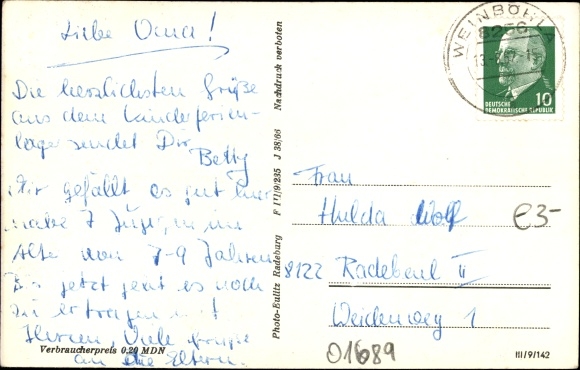 Liebe Oma!
Die herzlichsten Grüße
aus dem Kinderferien-
lager sendet Dir
Betty
Mir gefällt es gut hier
habe 7 Jungen im
Alter von 7-9 Jahren
Bis jetzt geht es noch
zu ertragen
Viele Grüße
an die Eltern.
Verbraucherpreis 0,20 MDN
Photo-Bulitz Radeburg F III/9/235 J 38/66 Nachdruck verboten
WEINBÖHLA
8256
DEUTSCHE
DEMOKRATISCHE REPUBLIK
10
Frau
Hulda Wolf
€3-
8122 Radebeul II
Weidenweg 1
01689
III/9/142